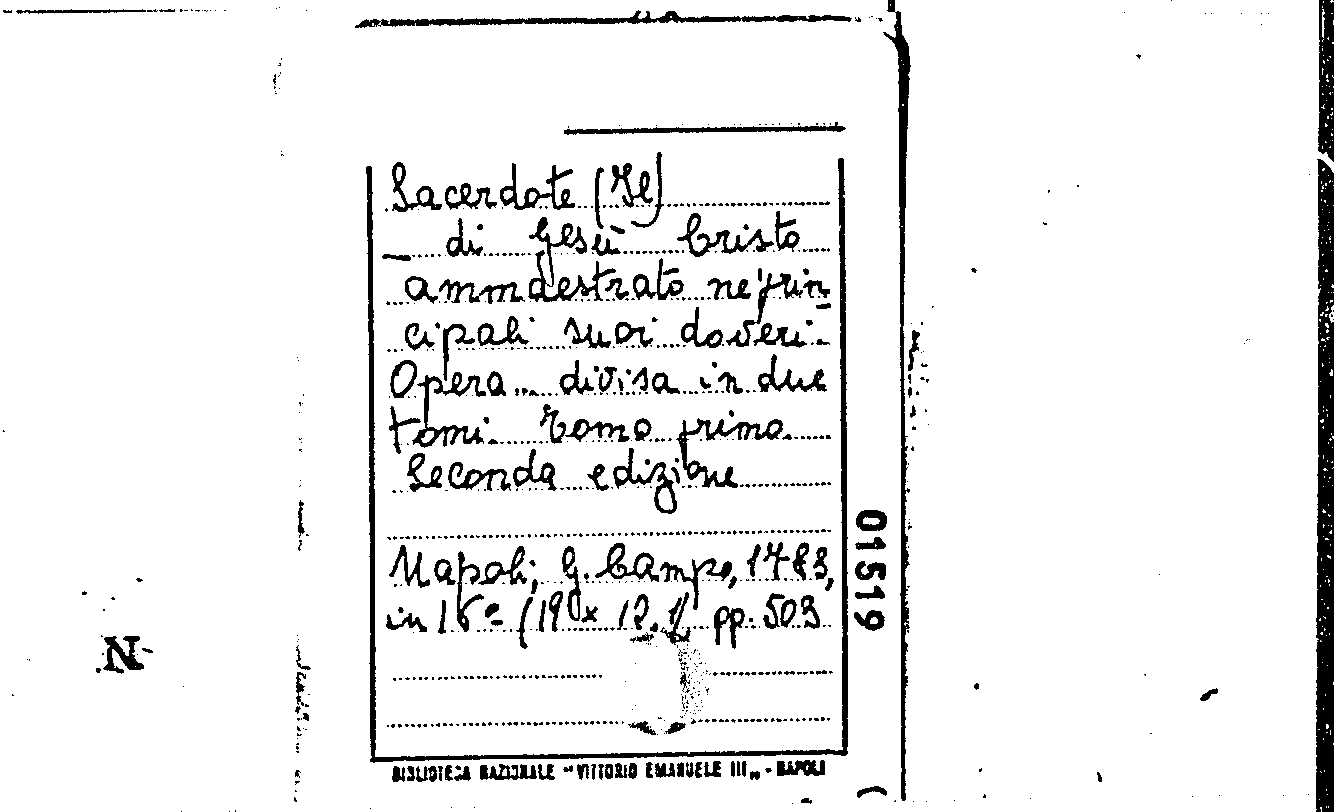 Sacerdote (Il)
— di Gesù Cristo
ammaestrato ne' prin
cipali suoi doveri.
Opera... divisa in due
tomi. Tomo primo
Seconda edizione
Napoli, G. Campo, 1783,
in 16º (19 x 12.) pp. 503
01519
N
BIBLIOTECA NAZIONALE "VITTORIO EMANUELE III„ - NAPOLI